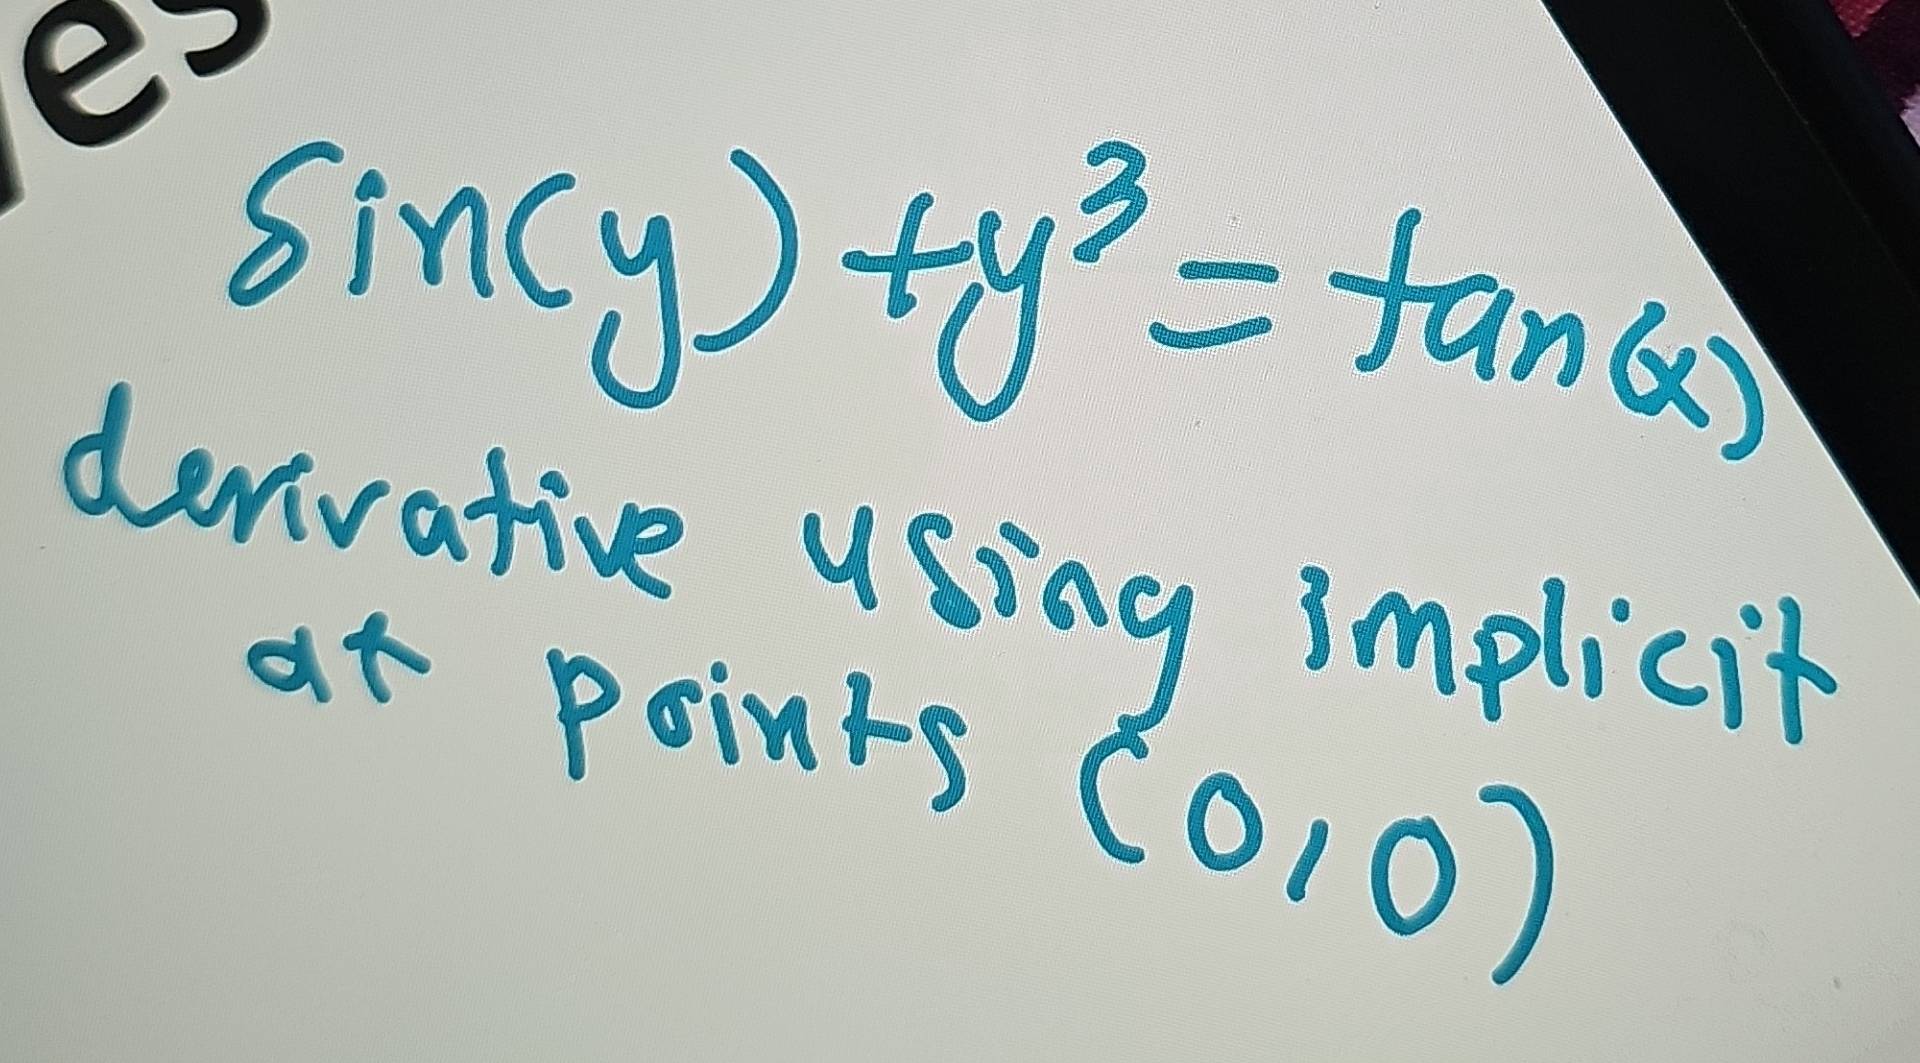 es
sin(y) + y³ = tan(x)
derivative using implicit
at points (0,0)